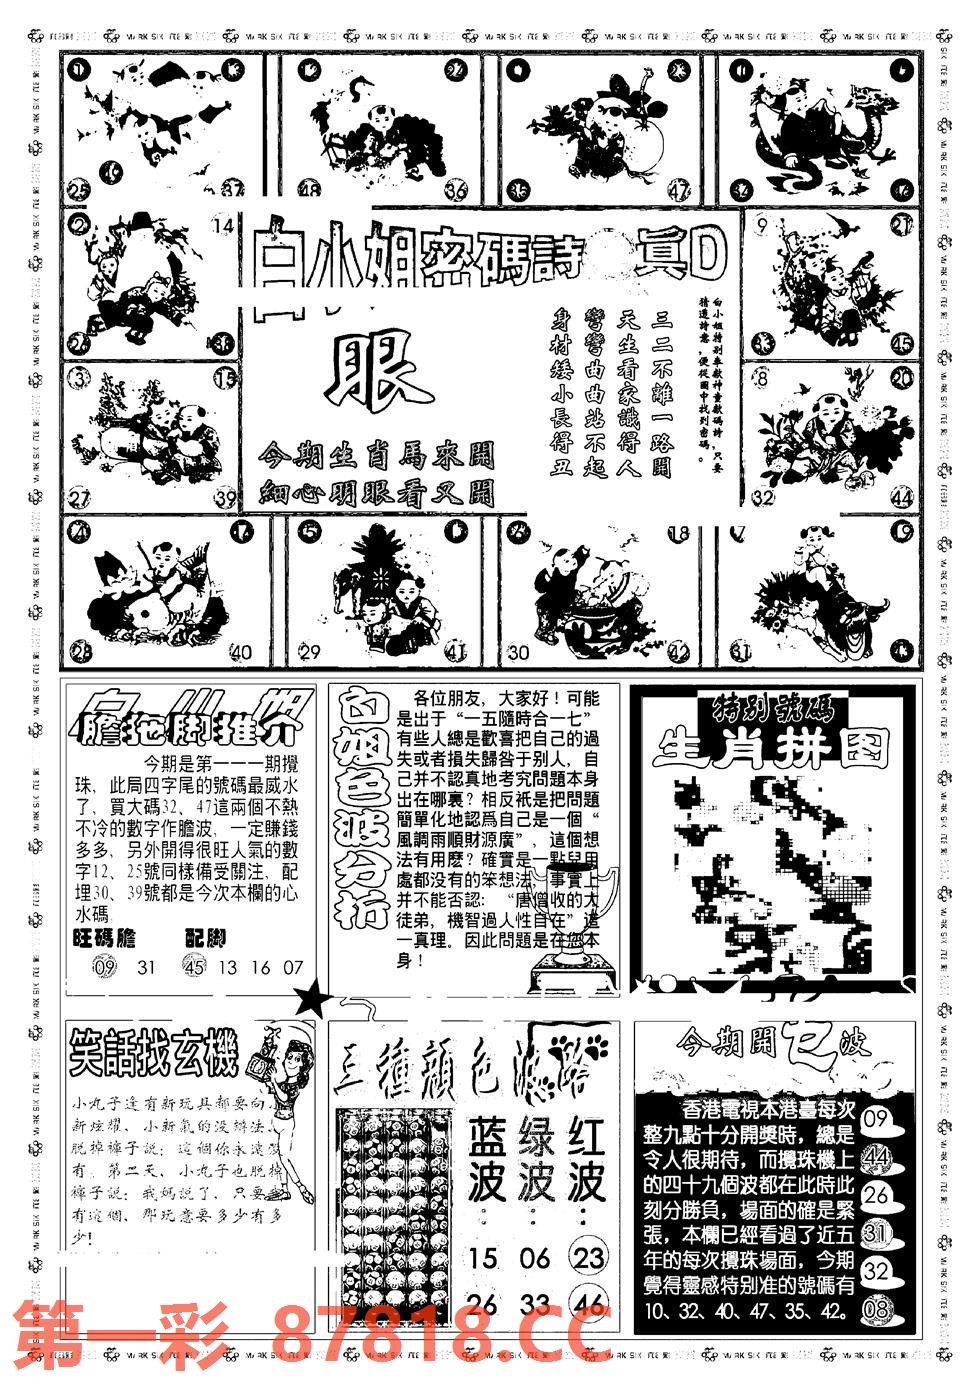 白小姐密碼詩 真D
眼
今期生肖馬來開
細心明眼看又開
白小姐特别奉獻神童獻碼詩，只要
猜透詩意，便從圖中找到密碼。
三二不離一路開
天生看家識得人
彎彎曲曲站不起
身材矮小長得丑
25 37
48 36
35 47
2 14
26 38
9 21
33 45
3 15
27 39
8 20
32 44
4
28 40
5
29 41
18
30 42
19
31
白小姐
膽拖脚推介
今期是第一一一期攪
珠，此局四字尾的號碼最威水
了，買大碼32、47這兩個不熱
不冷的數字作膽波，一定賺錢
多多、另外開得很旺人氣的數
字12、25號同樣備受關注，配
埋30、39號都是今次本欄的心
水碼
旺碼膽 配脚
09 31 45 13 16 07
白姐色波分析
各位朋友，大家好！可能
是出于“一五隨時合一七”
有些人總是歡喜把自己的過
失或者損失歸咎于别人，自
己并不認真地考究問題本身
出在哪裏？相反衹是把問題
簡單化地認爲自己是一個“
風調雨順財源廣”，這個想
法有用麽？確實是一點兒用
處都没有的笨想法，事實上
并不能否認：“唐僧收的大
徒弟，機智過人性自在”這
一真理。因此問題是在您本
身！
特别號碼
生肖拼图
笑話找玄機
小丸子逢有新玩具都要向
新炫耀、小新氣的没辦法、
脱掉褲子説：這個你永遠没
有、第二天、小丸子也脱掉
褲子説：我媽説了、只要
有這個、那玩意要多少有多
少！
三種顔色波路
蓝波： 绿波： 红波：
15 06 23
26 33 46
今期開色波
香港電視本港臺每次
整九點十分開獎時，總是
令人很期待，而攪珠機上
的四十九個波都在此時此
刻分勝負，場面的確是緊
張，本欄已經看過了近五
年的每次攪珠場面，今期
覺得靈感特别准的號碼有
10、32、40、47、35、42。
09
44
26
31
32
08
第一彩 87818 CC